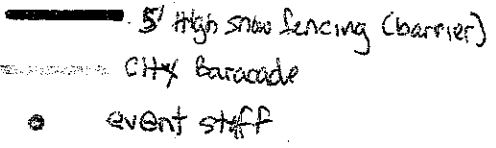 5' High snow fencing (barrier)
City Baracade
event staff